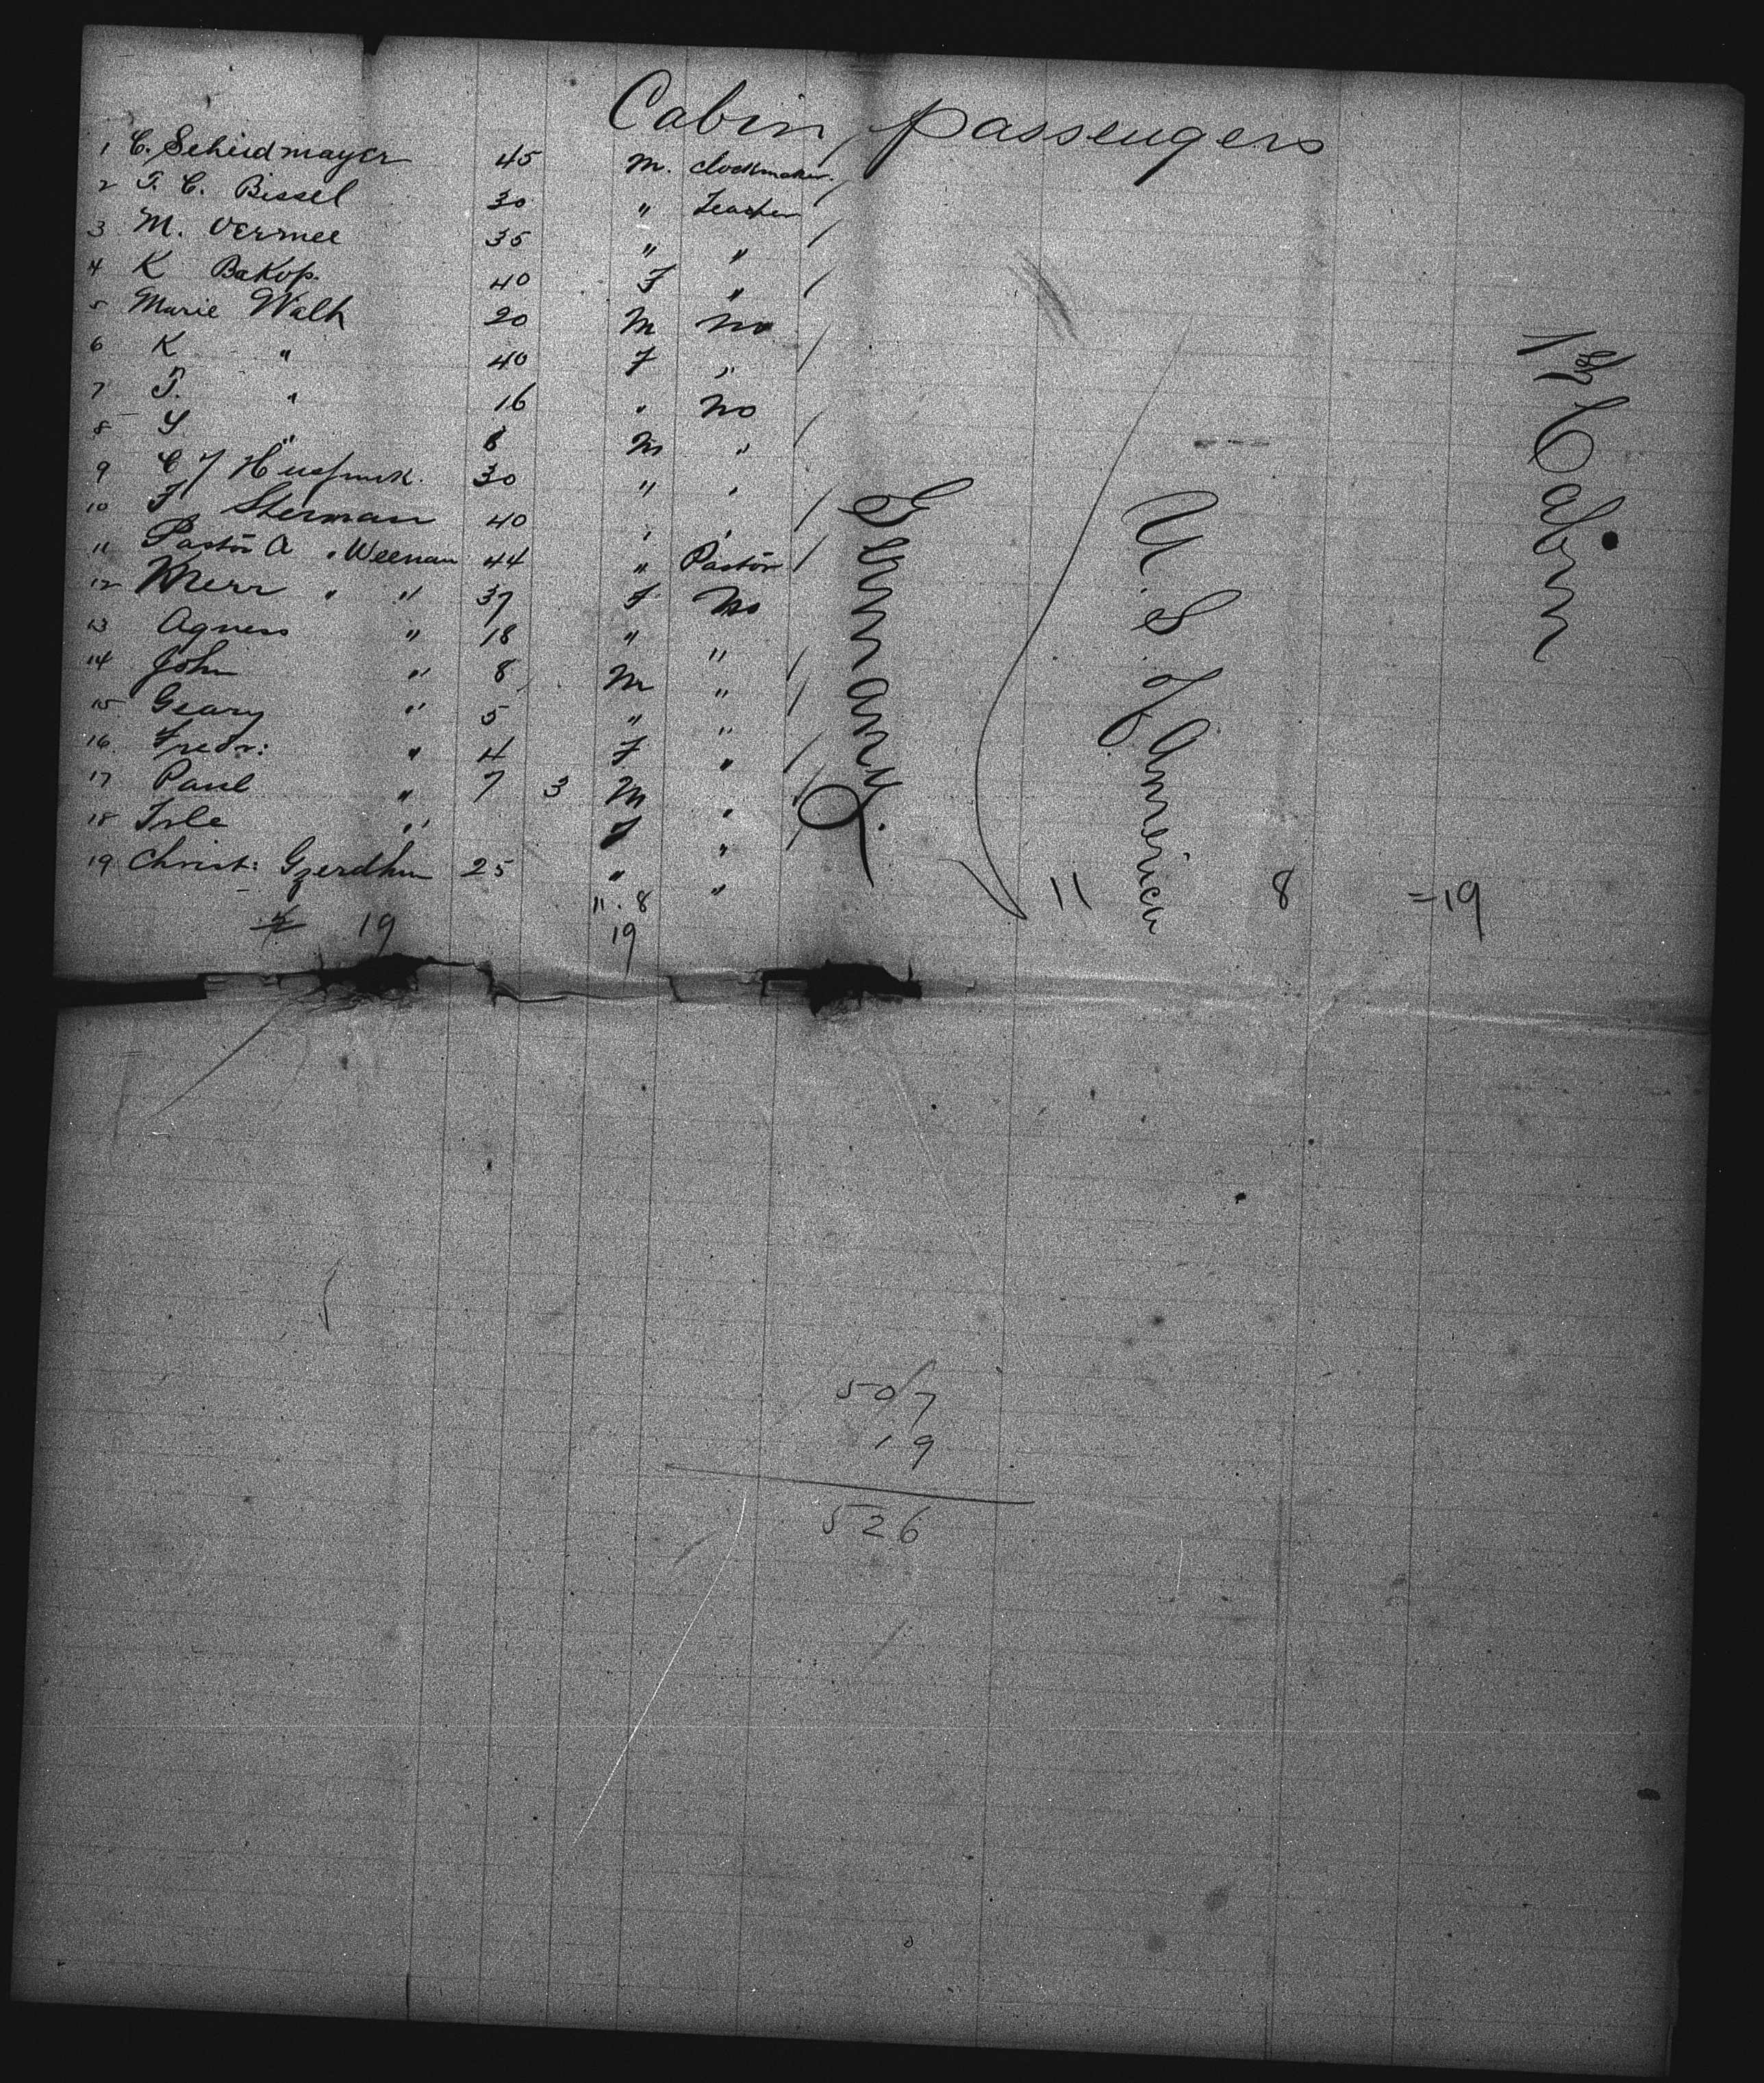 Cabin passengers
1 C. Scheidmayer 45 M. clockmaker.
2 T. C. Bissel 30 " Teacher
3 M. Vermee 35 " "
4 K Bakop. 40 F "
5 Marie Walh 20 M no
6 K " 40 F "
7 T. " 16 " no
8 " 8 M "
9 C 30 " "
10 F Sherman 40 " "
11 Pastor A. Weenan 44 " Pastor
12 " " 37 F No
13 Agness " 18 " "
14 John " 8 M "
15 Geary " 5 " "
16. Fredr: " 4 F "
17 Paul " 7 3 M "
18 " F "
19 Christ: 25 " "
19 11. 8
19
Germany.
U. S. of America
1st Cabin
11 8 =19
507
19
526